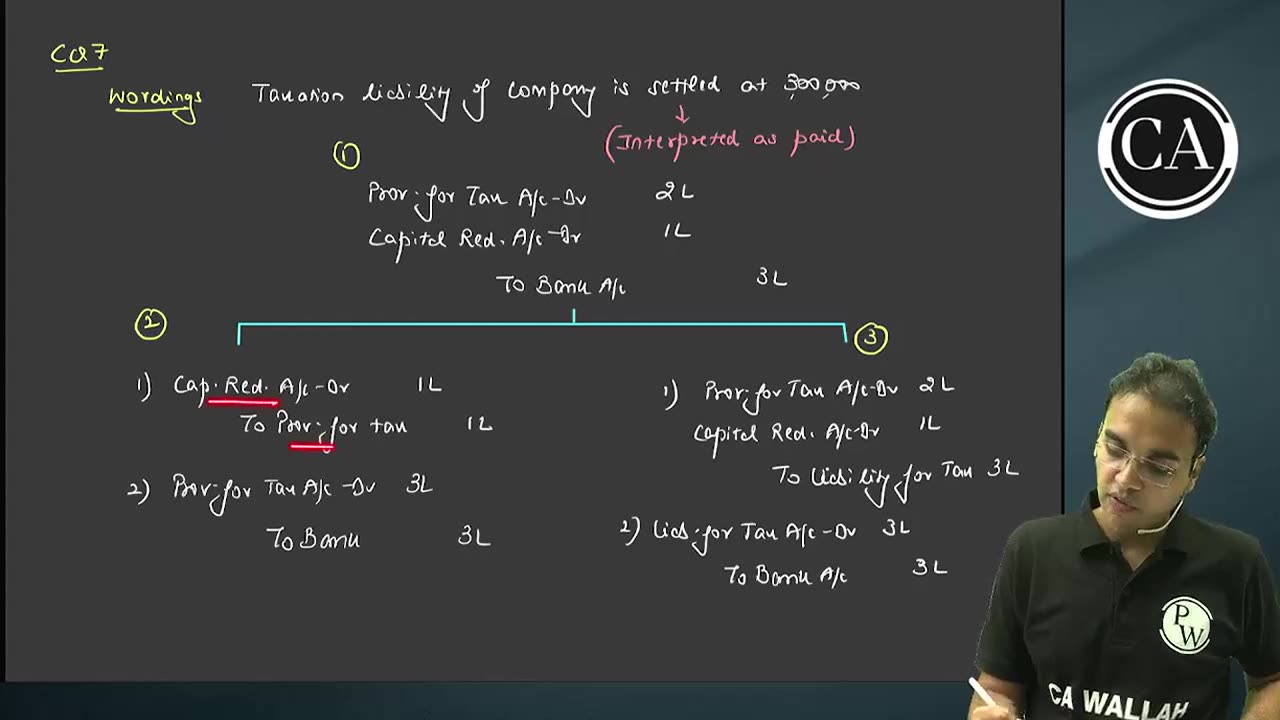 CQ7
Wordings Taxation liability of company is settled at 300,000
(Interpreted as paid)
1
Prov. for Tax A/c - Dr 2L
Capital Red. A/c - Dr 1L
To Bank A/c 3L
2
1) Cap. Red. A/c - Dr 1L
To Prov. for tax 1L
2) Prov. for Tax A/c - Dr 3L
To Bank 3L
3
1) Prov. for Tax A/c - Dr 2L
Capital Red. A/c - Dr 1L
To Liability for Tax 3L
2) Liab. for Tax A/c - Dr 3L
To Bank A/c 3L
CA
PW
CA WALLAH